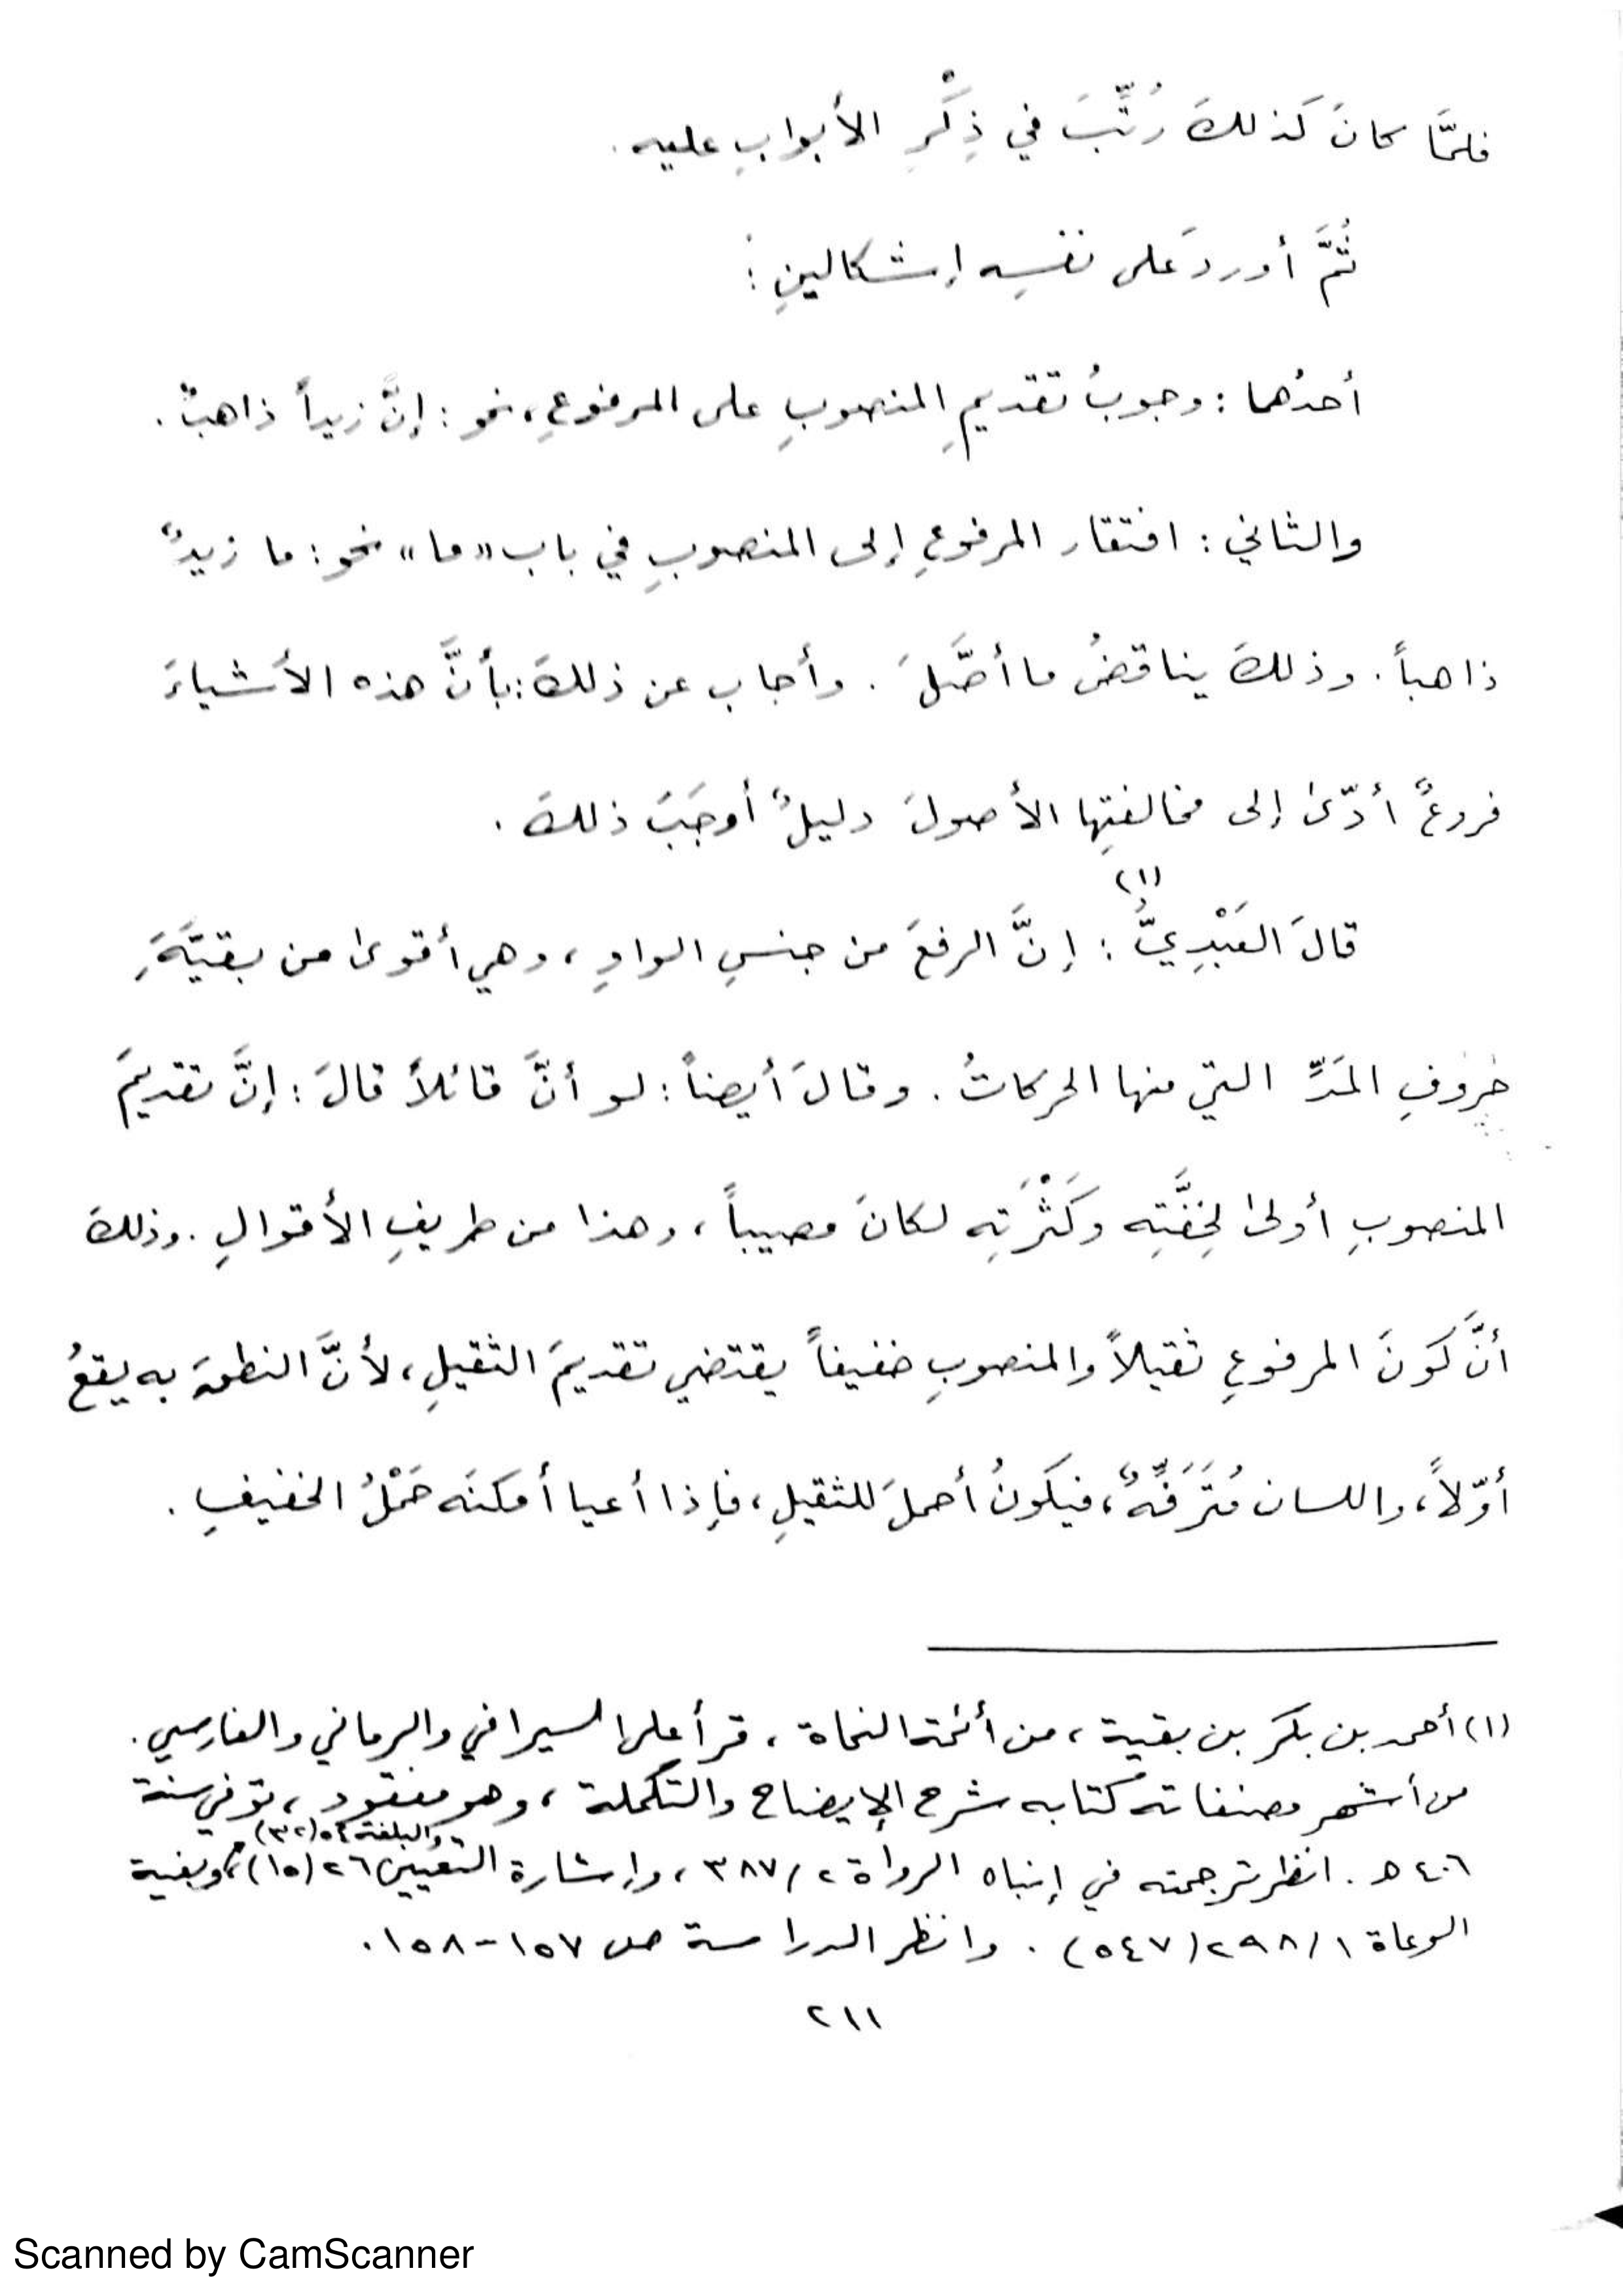 فلمَّا كانَ كَذلكَ رُتِّبَ في ذِكْرِ الأبوابِ عليه.
ثُمَّ أوردَ على نفسِه إشكالينِ:
أحدُهما: وجوبُ تقديمِ المنصوبِ على المرفوعِ، نحو: إنَّ زيداً ذاهبٌ.
والثاني: افتقار المرفوعِ إلى المنصوبِ في باب «ما» نحو: ما زيدٌ
ذاهباً. وذلكَ يناقضُ ما أصَّلَ. وأجاب عن ذلكَ: بأنَّ هذه الأشياءَ
فروعٌ أدّى إلى مخالفتِها الأصولَ دليلٌ أوجَبَ ذلكَ.
قالَ العَبْدِيُّ(١): إنَّ الرفعَ من جنسِ الواوِ، وهي أقوى من بقيَّةِ
حُروفِ المَدِّ التي منها الحركاتُ. وقالَ أيضاً: لو أنَّ قائلاً قالَ: إنَّ تقديمَ
المنصوبِ أولى لخِفَّتِه وكَثْرَتِه لكانَ مصيباً، وهذا من طريفِ الأقوالِ. وذلكَ
أنَّ كَونَ المرفوعِ ثقيلاً والمنصوبِ خفيفاً يقتضي تقديمَ الثقيلِ، لأنَّ النطقَ به يقعُ
أوّلاً، واللسان مُتَرَفِّهٌ، فيكونُ أحملَ للثقيلِ، فإذا أعيا أمكنَه حَمْلُ الخفيفِ.
(١) أحمد بن بكر بن بقية، من أئمة النحاة، قرأ على السيرافي والرماني والفارسي.
من أشهر مصنفاته كتابه شرح الإيضاح والتكملة، وهو مفقود، توفي سنة
٤٠٦ هـ. انظر ترجمته في إنباه الرواة ٢/ ٣٨٧، وإشارة التعيين ٢٦ (١٥) والبلغة ٥٤ (٣٢)، وبغية
الوعاة ١/ ٢٩٨ (٥٤٧). وانظر الدراسة ص ١٥٧-١٥٨.
٢١١
Scanned by CamScanner